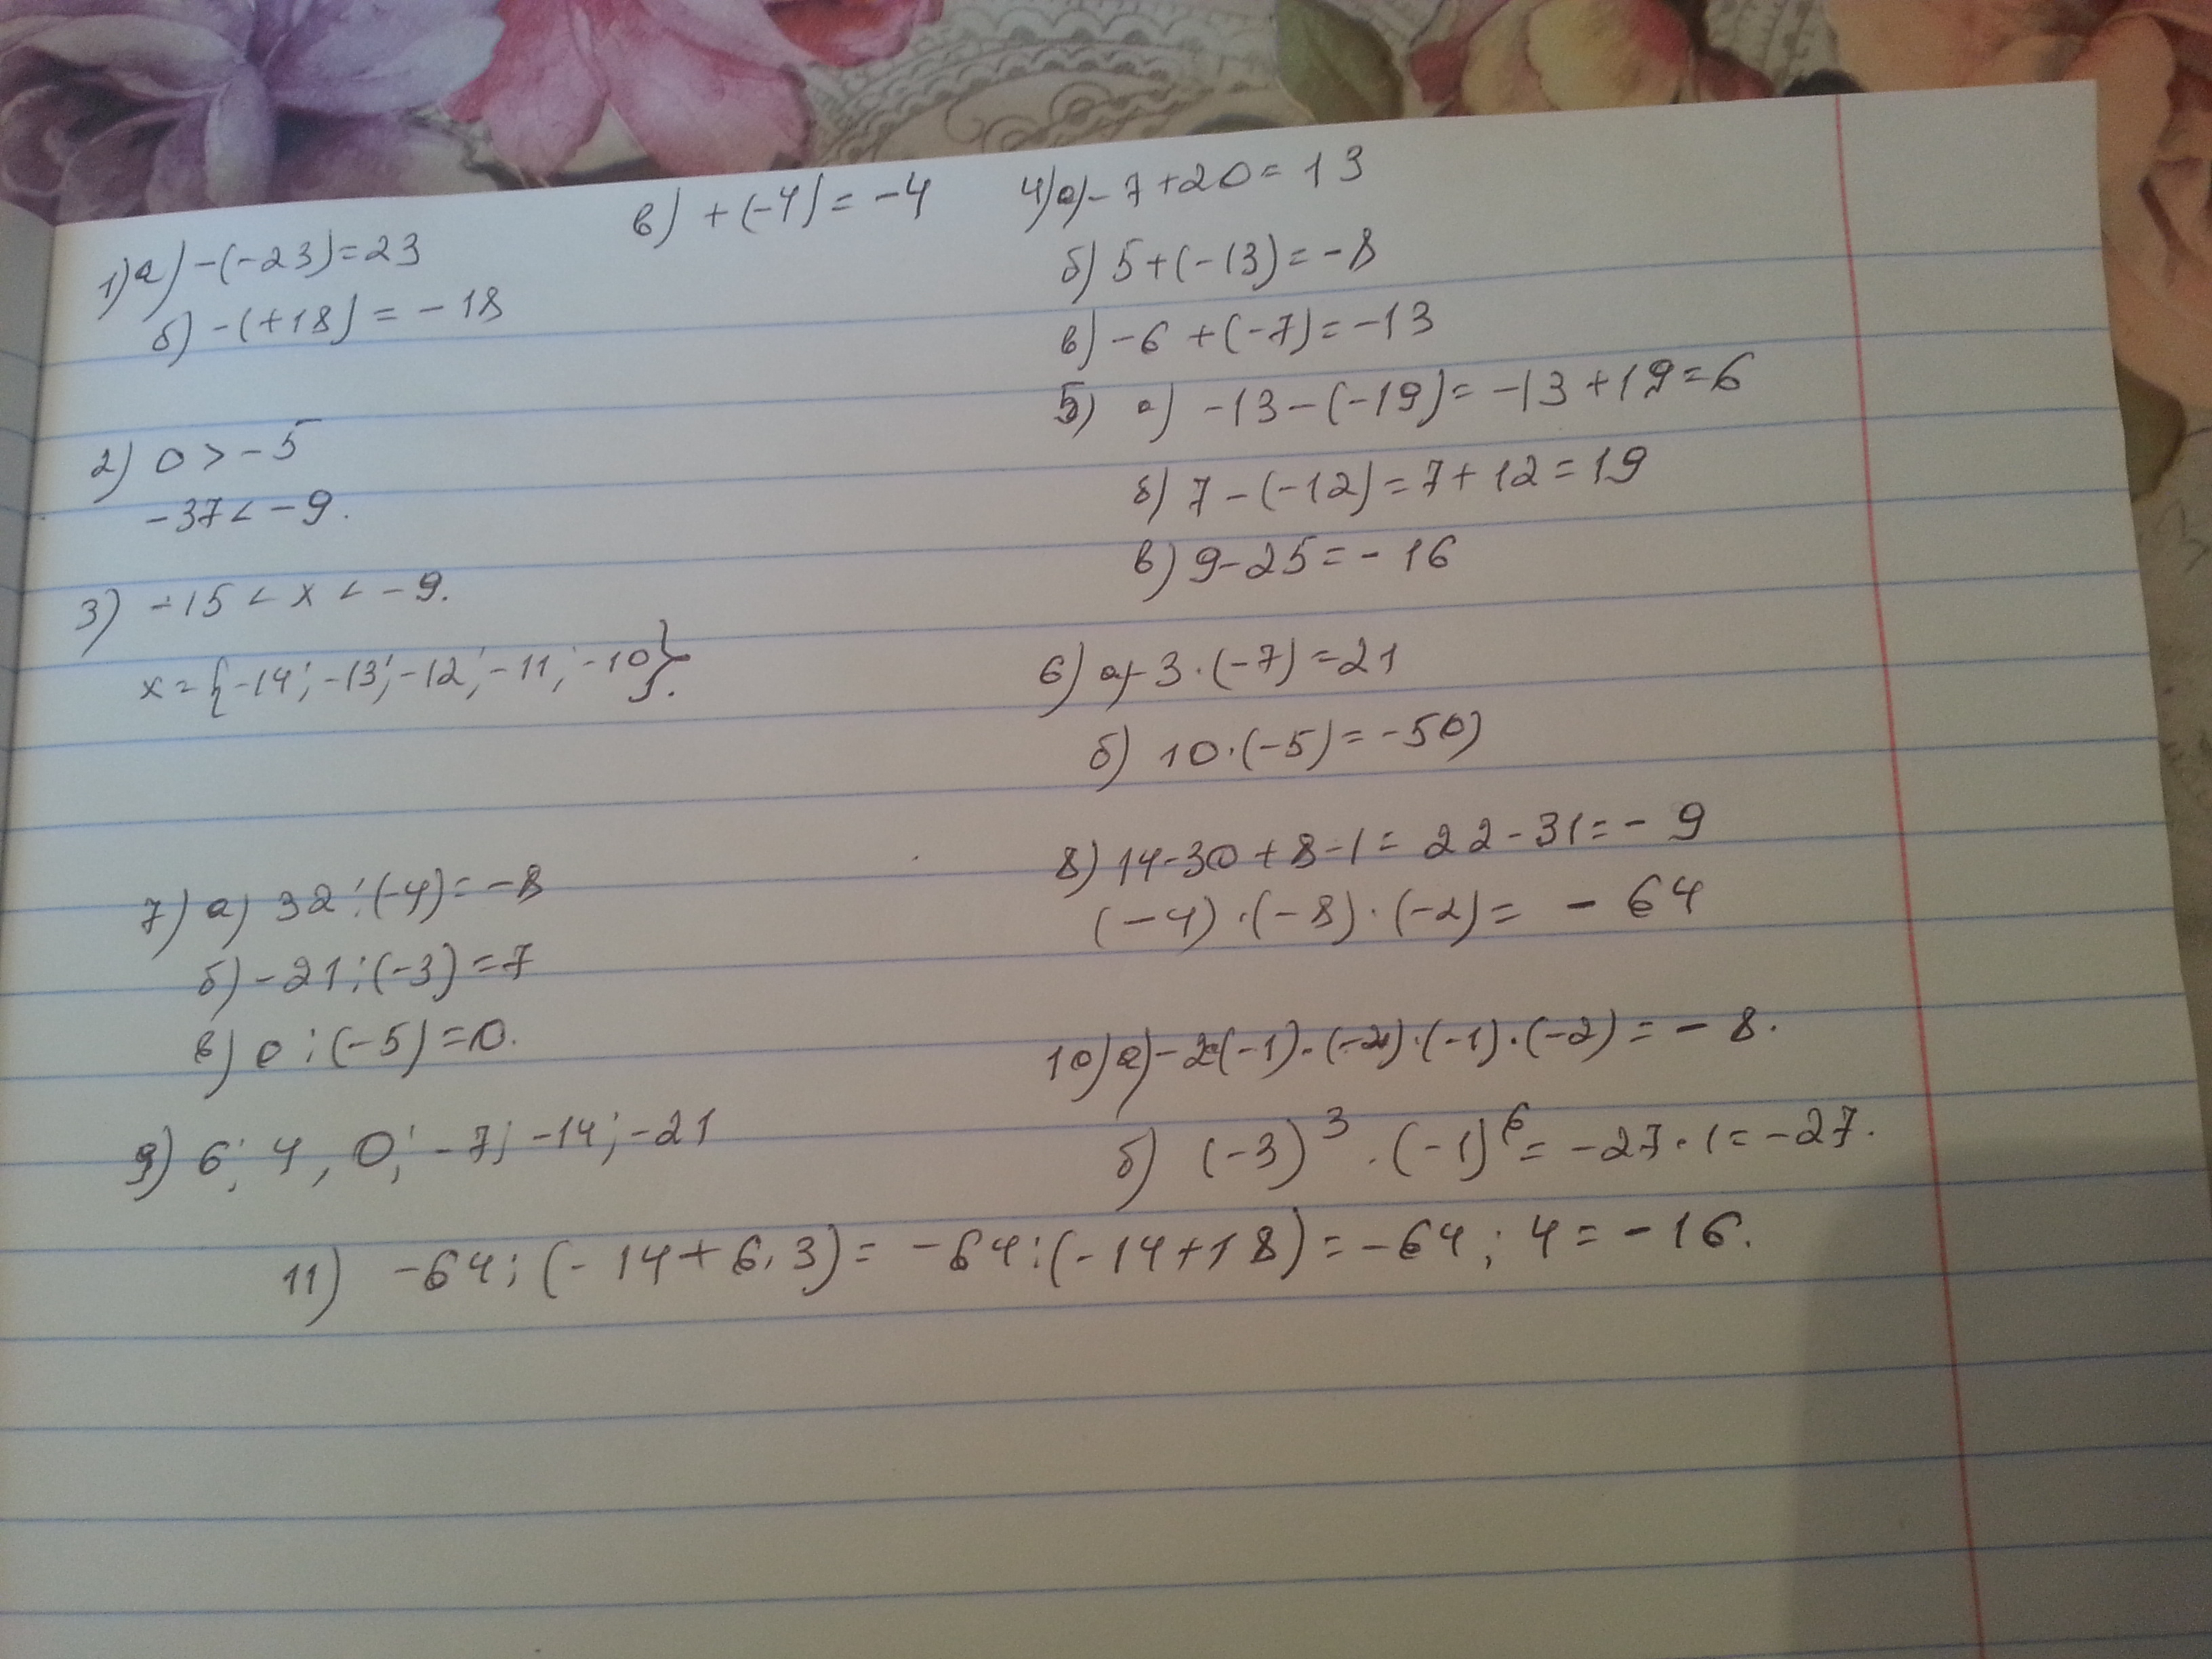 1) а) -(-23)=23
б) -(+18) = -18
в) +(-4) = -4
2) 0 > -5
-37 < -9.
3) -15 < x < -9.
x = {-14; -13; -12; -11; -10}.
4) а) -7+20 = 13
б) 5+(-13) = -8
в) -6 +(-7) = -13
5) а) -13-(-19) = -13+19=6
б) 7-(-12) = 7+12=19
в) 9-25 = -16
6) а) -3·(-7) = 21
б) 10·(-5) = -50)
7) а) 32:(-4) = -8
б) -21:(-3) = 7
в) 0:(-5) = 0.
8) 14-30+8-1 = 22-31 = -9
(-4)·(-8)·(-2) = -64
9) 6; 4, 0; -7; -14; -21
10) а) -2·(-1)·(-2)·(-1)·(-2) = -8.
б) (-3)³·(-1)⁶ = -27·1 = -27.
11) -64:(-14+6·3) = -64:(-14+18) = -64:4 = -16.